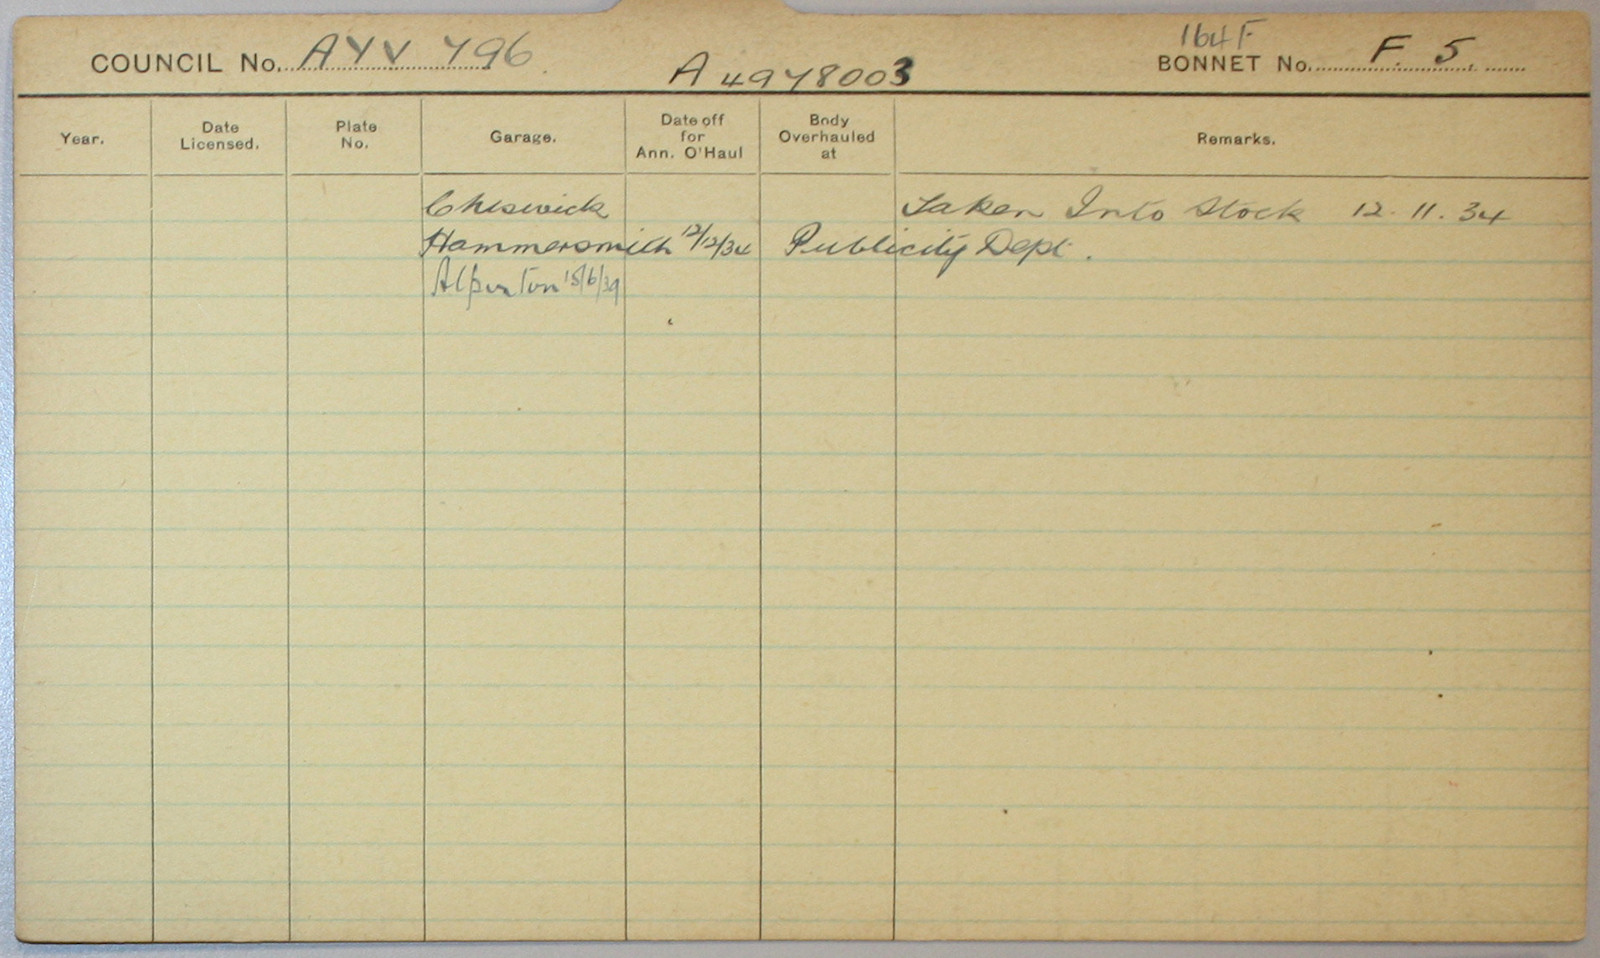 164F
COUNCIL No. AYV 796 A 4978003 BONNET No. F. 5.
Year. Date Licensed. Plate No. Garage. Date off for Ann. O'Haul Body Overhauled at Remarks.
Chiswick Taken Into Stock 12. 11. 34
Hammersmith 12/12/34 Publicity Dept.
Alperton 15/6/39